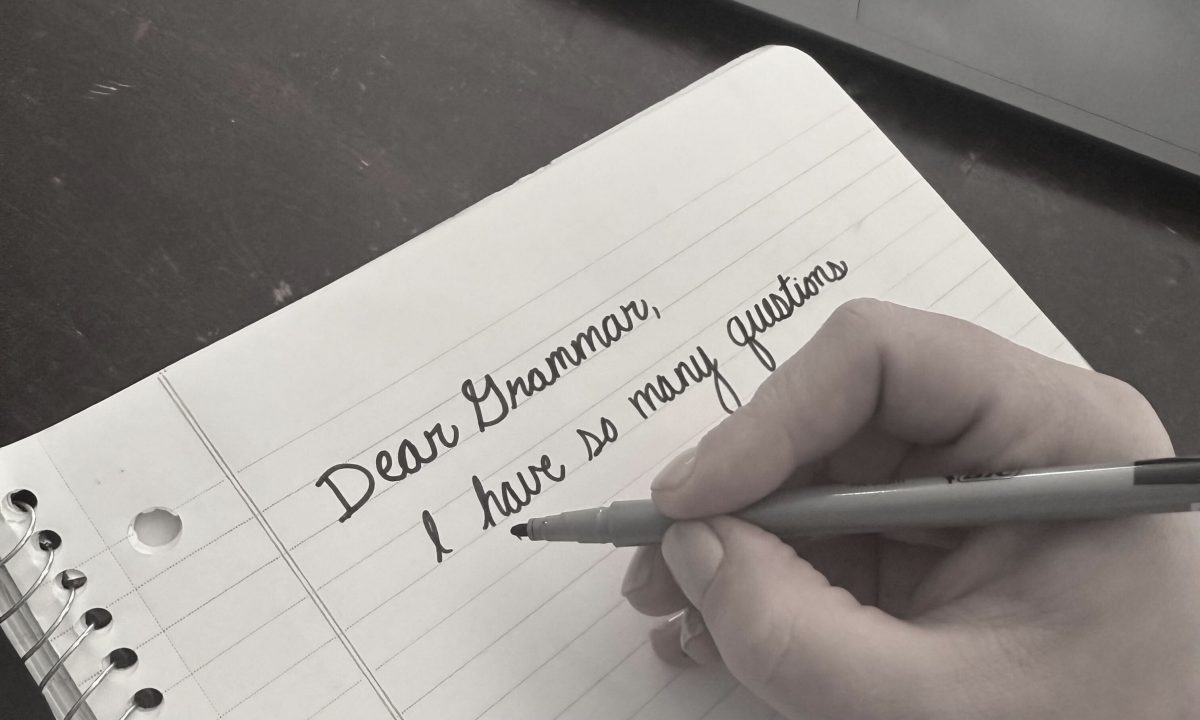 Dear Grammar,
I have so many questions
BIC